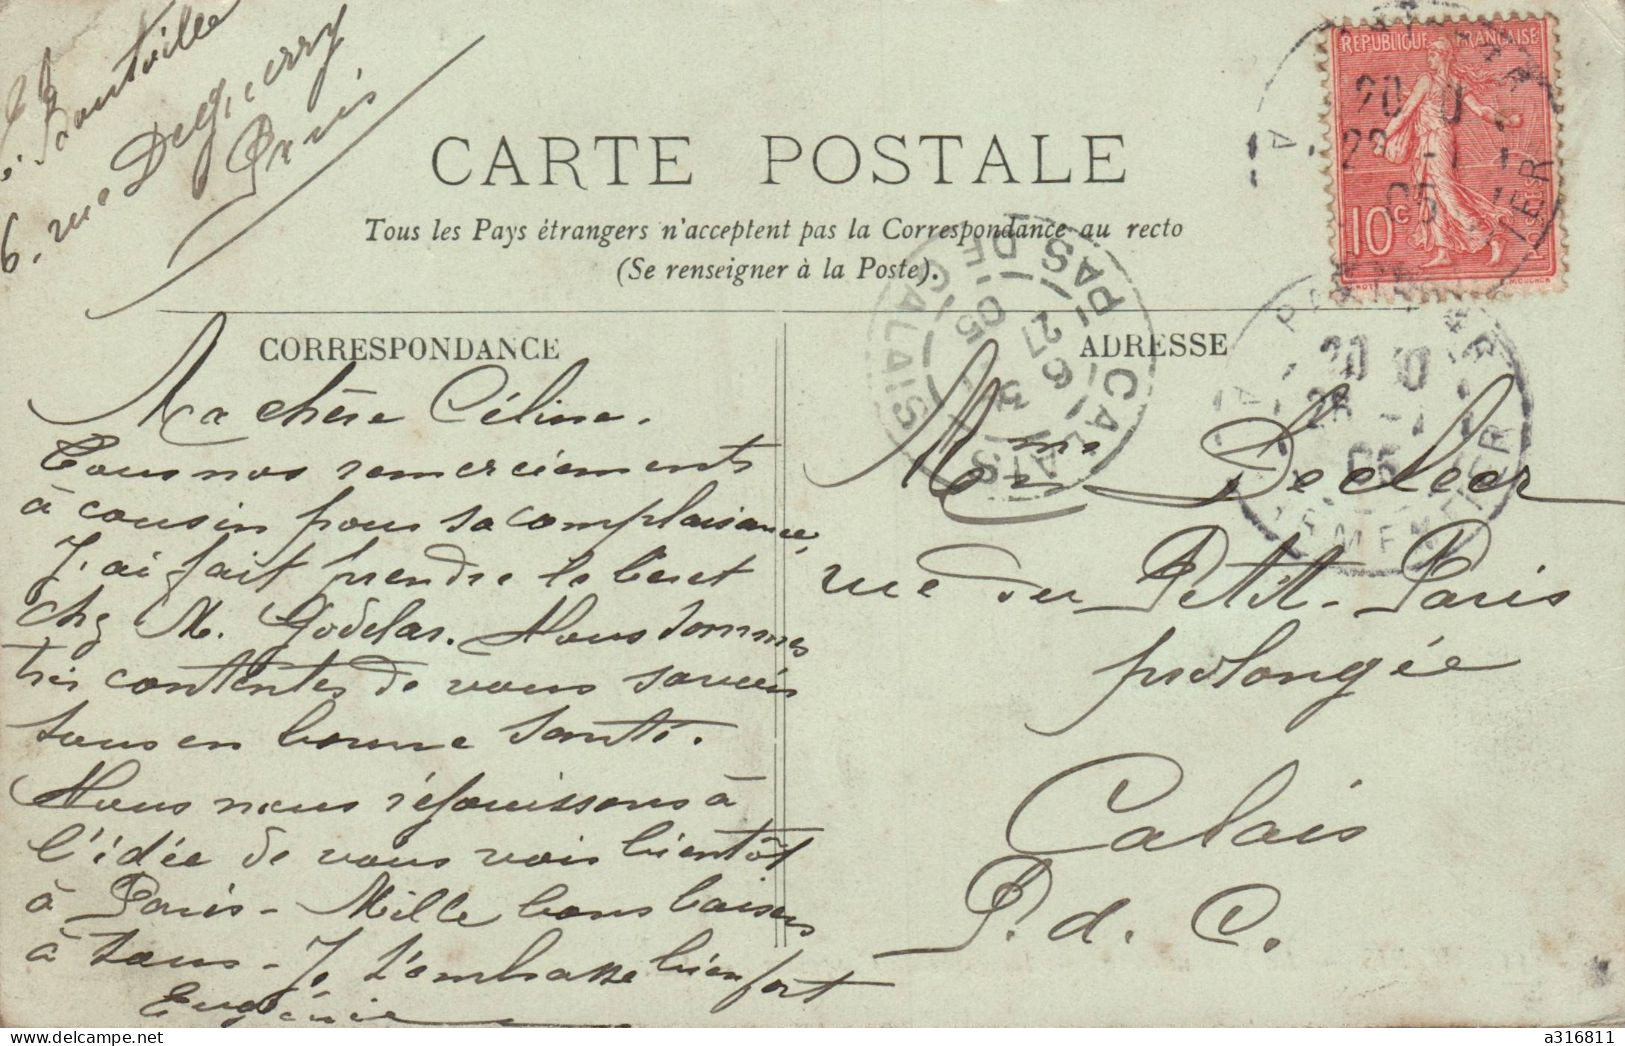 6. rue
Paris
CARTE POSTALE
Tous les Pays étrangers n'acceptent pas la Correspondance au recto
(Se renseigner à la Poste).
REPUBLIQUE FRANÇAISE
10c
CORRESPONDANCE
Ma chère Céline.
Tous nos remerciements
à cousin pour sa complaisance,
J'ai fait prendre le beret
chez M. Godelas. Nous sommes
très contentes de vous savoir
tous en bonne santé.
Nous nous réjouissons à
l'idée de vous voir bientôt
à Paris - Mille bons baisers
à tous - Je t'embrasse bien fort
Eugénie
ADRESSE
Mme Decleer
rue du Petit-Paris
prolongée
Calais
P. d. C.
CALAIS
PAS DE CALAIS
27
05
a316811